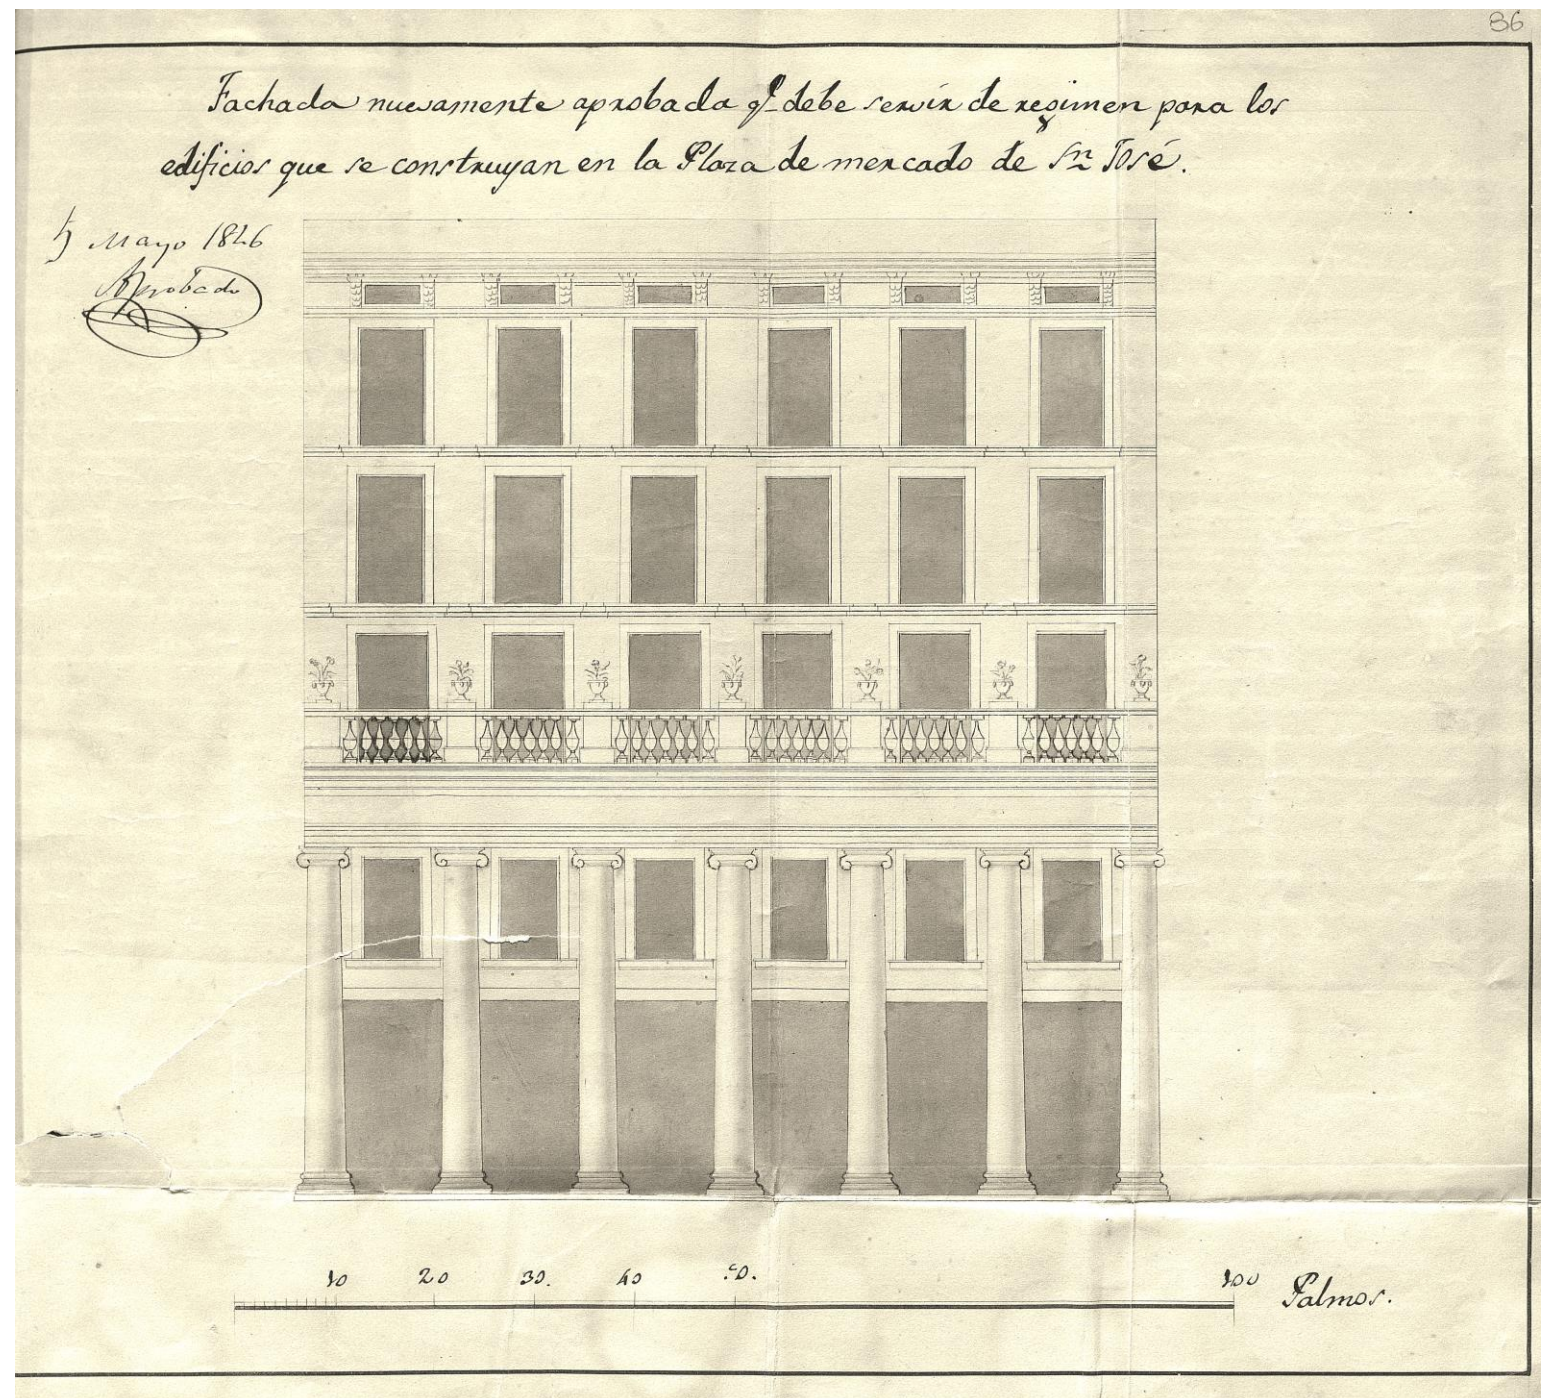 86
Fachada nuevamente aprobada q.e debe servir de regimen para los
edificios que se construyan en la Plaza de mercado de Sn José.
Mayo 1846
Aprobado
10 20 30. 40 50. 100 Palmos.